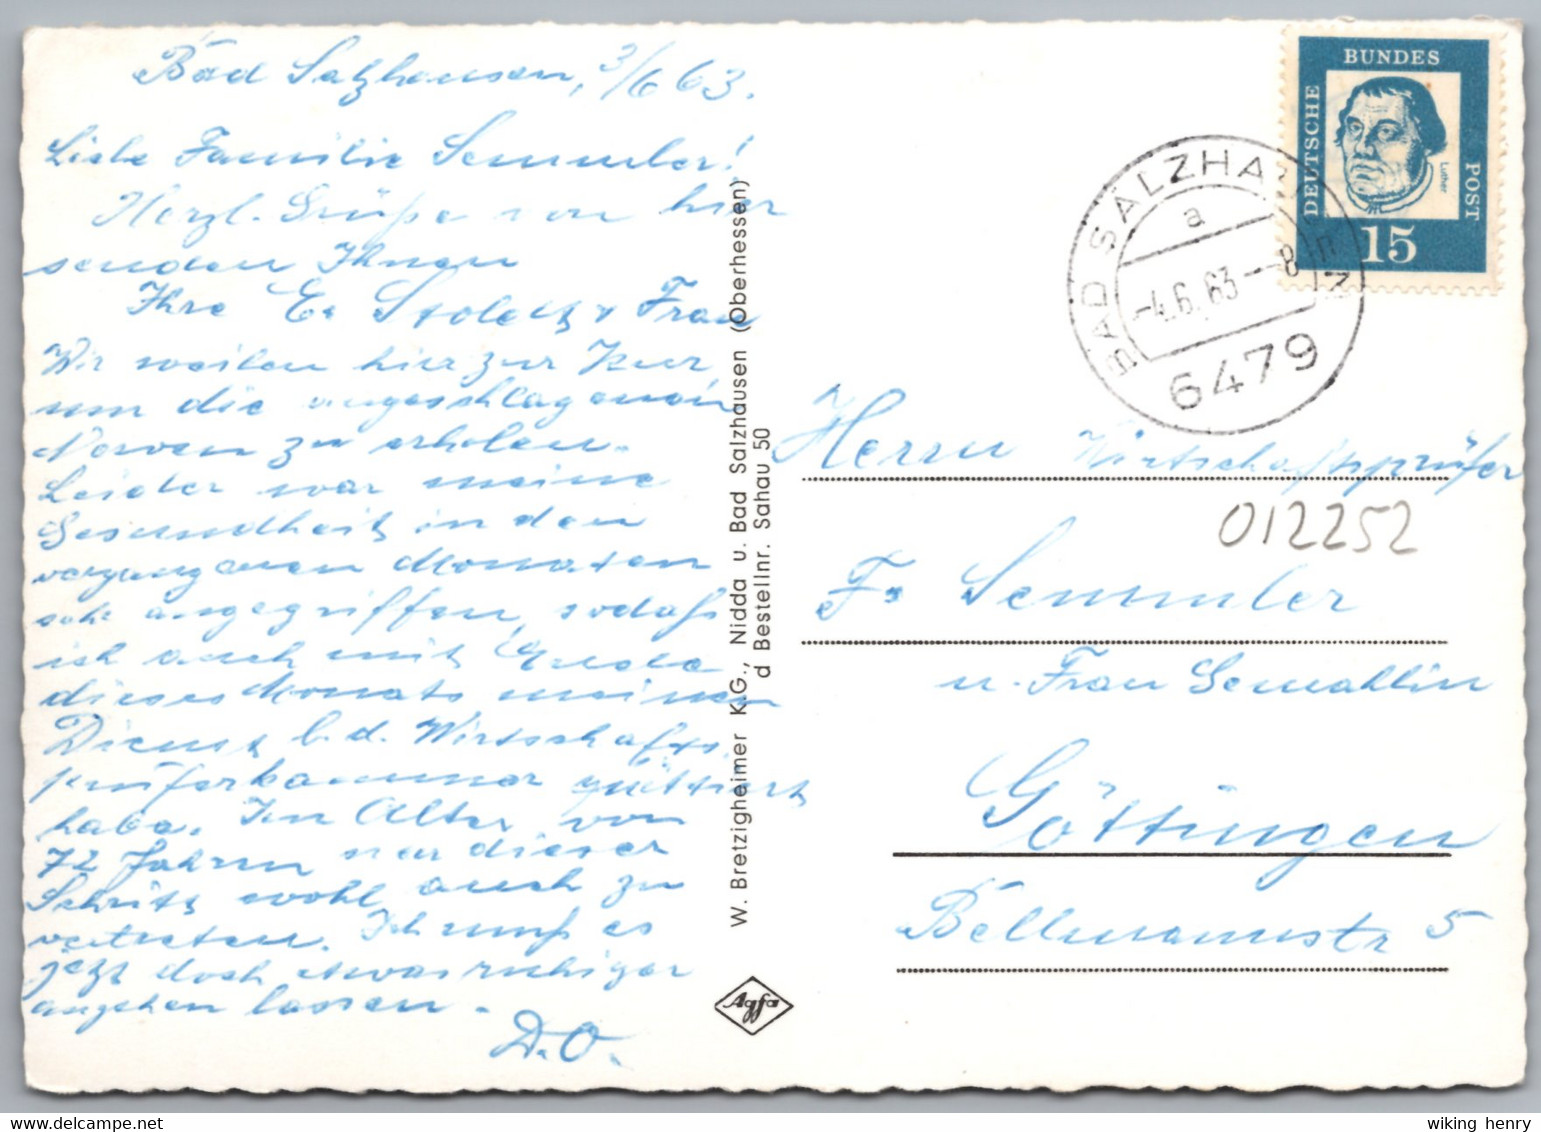 Bad Salzhausen, 3/6 63.
Liebe Familie Semmler!
Herzl. Grüße von hier
senden Ihnen
Ihre E. Stoletz u Frau
Wir weilen hier zur Kur
um die angeschlagenen
Nerven zu erholen.
Leider war meine
Gesundheit in den
vergangenen Monaten
sehr angegriffen, sodaß
ich auch mit Ende
dieses Monats meinen
Dienst b. d. Wirtschafts
prüferkammer quittiert
habe. Im Alter von
72 Jahren war dieser
Schritt wohl auch zu
vertreten. Ich muß es
jetzt doch etwas ruhiger
angehen lassen.
D. O.
W. Bretzigheimer KG., Nidda u. Bad Salzhausen (Oberhessen)
d Bestellnr. Sahau 50
Agfa
DEUTSCHE
BUNDES
POST
Luther
15
BAD SALZHAUSEN
a
-4.6.63--8
6479
Herrn Wirtschaftsprüfer
012252
F. Semmler
u. Frau Gemahlin
Göttingen
Bellmannstr 5
wiking henry